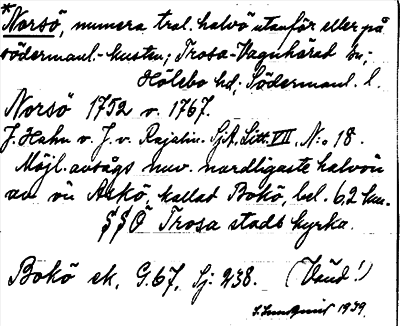 *Norsö, numera trol. halvö utanför eller på
södermanl.-kusten; Trosa-Vagnhärad sn;
Hölebo hd; Södermanl. l.
Norsö 1752 o. 1767.
J. Hahn o. J. v. Rajalin. SjA. Litt. VII, N:o 18.
Möjl. avsågs nuv. nordligaste halvön
av ön Askö, kallad Bokö, bel. 6,2 km.
SSÖ Trosa stads kyrka.
Bokö ek, G. 67, Sj: 238. (Vänd!)
1939.